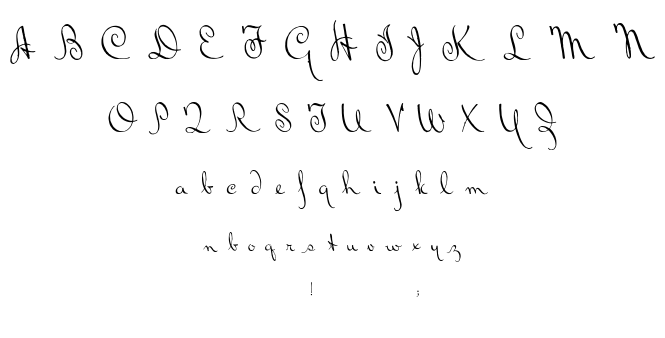 A B C D E F G H I J K L M N
O P Q R S T U V W X Y Z
a b c d e f q h i j k l m
n b o q r s t u o w x y z
! ;